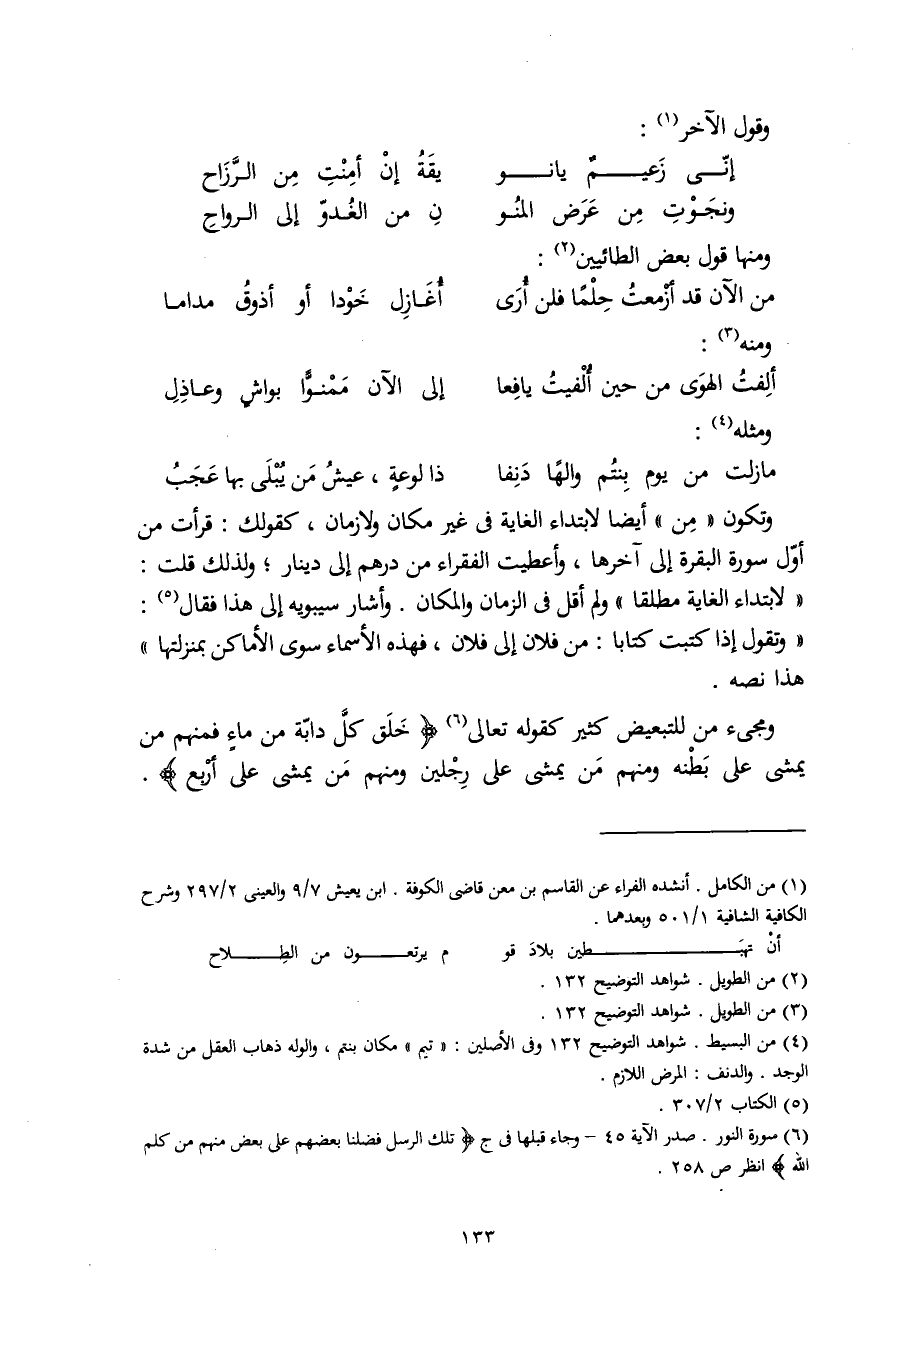 وقول الآخر(١) :
إنّــى زَعيــــــمٌ يانــــو      يقَةُ إنْ أمِنْتِ مِن الـرَّزَاح
ونجَـوْتِ مِن عَرَض المنُـو      نِ من الغُـدوّ إلى الـرواحِ
ومنها قول بعض الطائيين(٢) :
من الآن قد أزْمعتُ حِلْمًا فلن أُرَى      أُغَـازِل خَوْدا أو أذوقُ مدامـا
ومنه(٣) :
ألِفتُ الهوَى من حين أُلْفيتُ يافِعا      إلى الآن مَمْنـوًّا بواشٍ وعـاذِلِ
ومثله(٤) :
مازلت من يوم بِنتُم والهًا دَنِفا      ذا لوعةٍ ، عيشُ مَن يُبْلَى بها عَجَبُ
وتكون « مِن » أيضا لابتداء الغاية فى غير مكان ولازمان ، كقولك : قرأت من
أوّل سورة البقرة إلى آخرها ، وأعطيت الفقراء من درهم إلى دينار ؛ ولذلك قلت :
« لابتداء الغاية مطلقا » ولم أقل فى الزمان والمكان . وأشار سيبويه إلى هذا فقال(٥) :
« وتقول إذا كتبت كتابا : من فلان إلى فلان ، فهذه الأسماء سوى الأماكن بمنزلتها »
هذا نصه .
ومجىء من للتبعيض كثير كقوله تعالى(٦) ﴿ خَلَق كلَّ دابّة من ماءٍ فمنهم من
يمشى على بَطْنه ومنهم مَن يمشى على رِجْلين ومنهم مَن يمشى على أرْبع ﴾ .
(١) من الكامل . أنشده الفراء عن القاسم بن معن قاضى الكوفة . ابن يعيش ٩/٧ والعينى ٢٩٧/٢ وشرح
الكافية الشافية ٥٠١/١ وبعدهما .
أنْ تهبَــــــــــطين بلادَ قو      م يرتعـــــون من الطِـــــلاح
(٢) من الطويل . شواهد التوضيح ١٣٢ .
(٣) من الطويل . شواهد التوضيح ١٣٢ .
(٤) من البسيط . شواهد التوضيح ١٣٢ وفى الأصلين : « تيم » مكان بنتم ، والوله ذهاب العقل من شدة
الوجد . والدنف : المرض اللازم .
(٥) الكتاب ٣٠٧/٢ .
(٦) سورة النور . صدر الآية ٤٥ – وجاء قبلها فى ج ﴿ تلك الرسل فضلنا بعضهم على بعض منهم من كلم
الله ﴾ انظر ص ٢٥٨ .
١٣٣